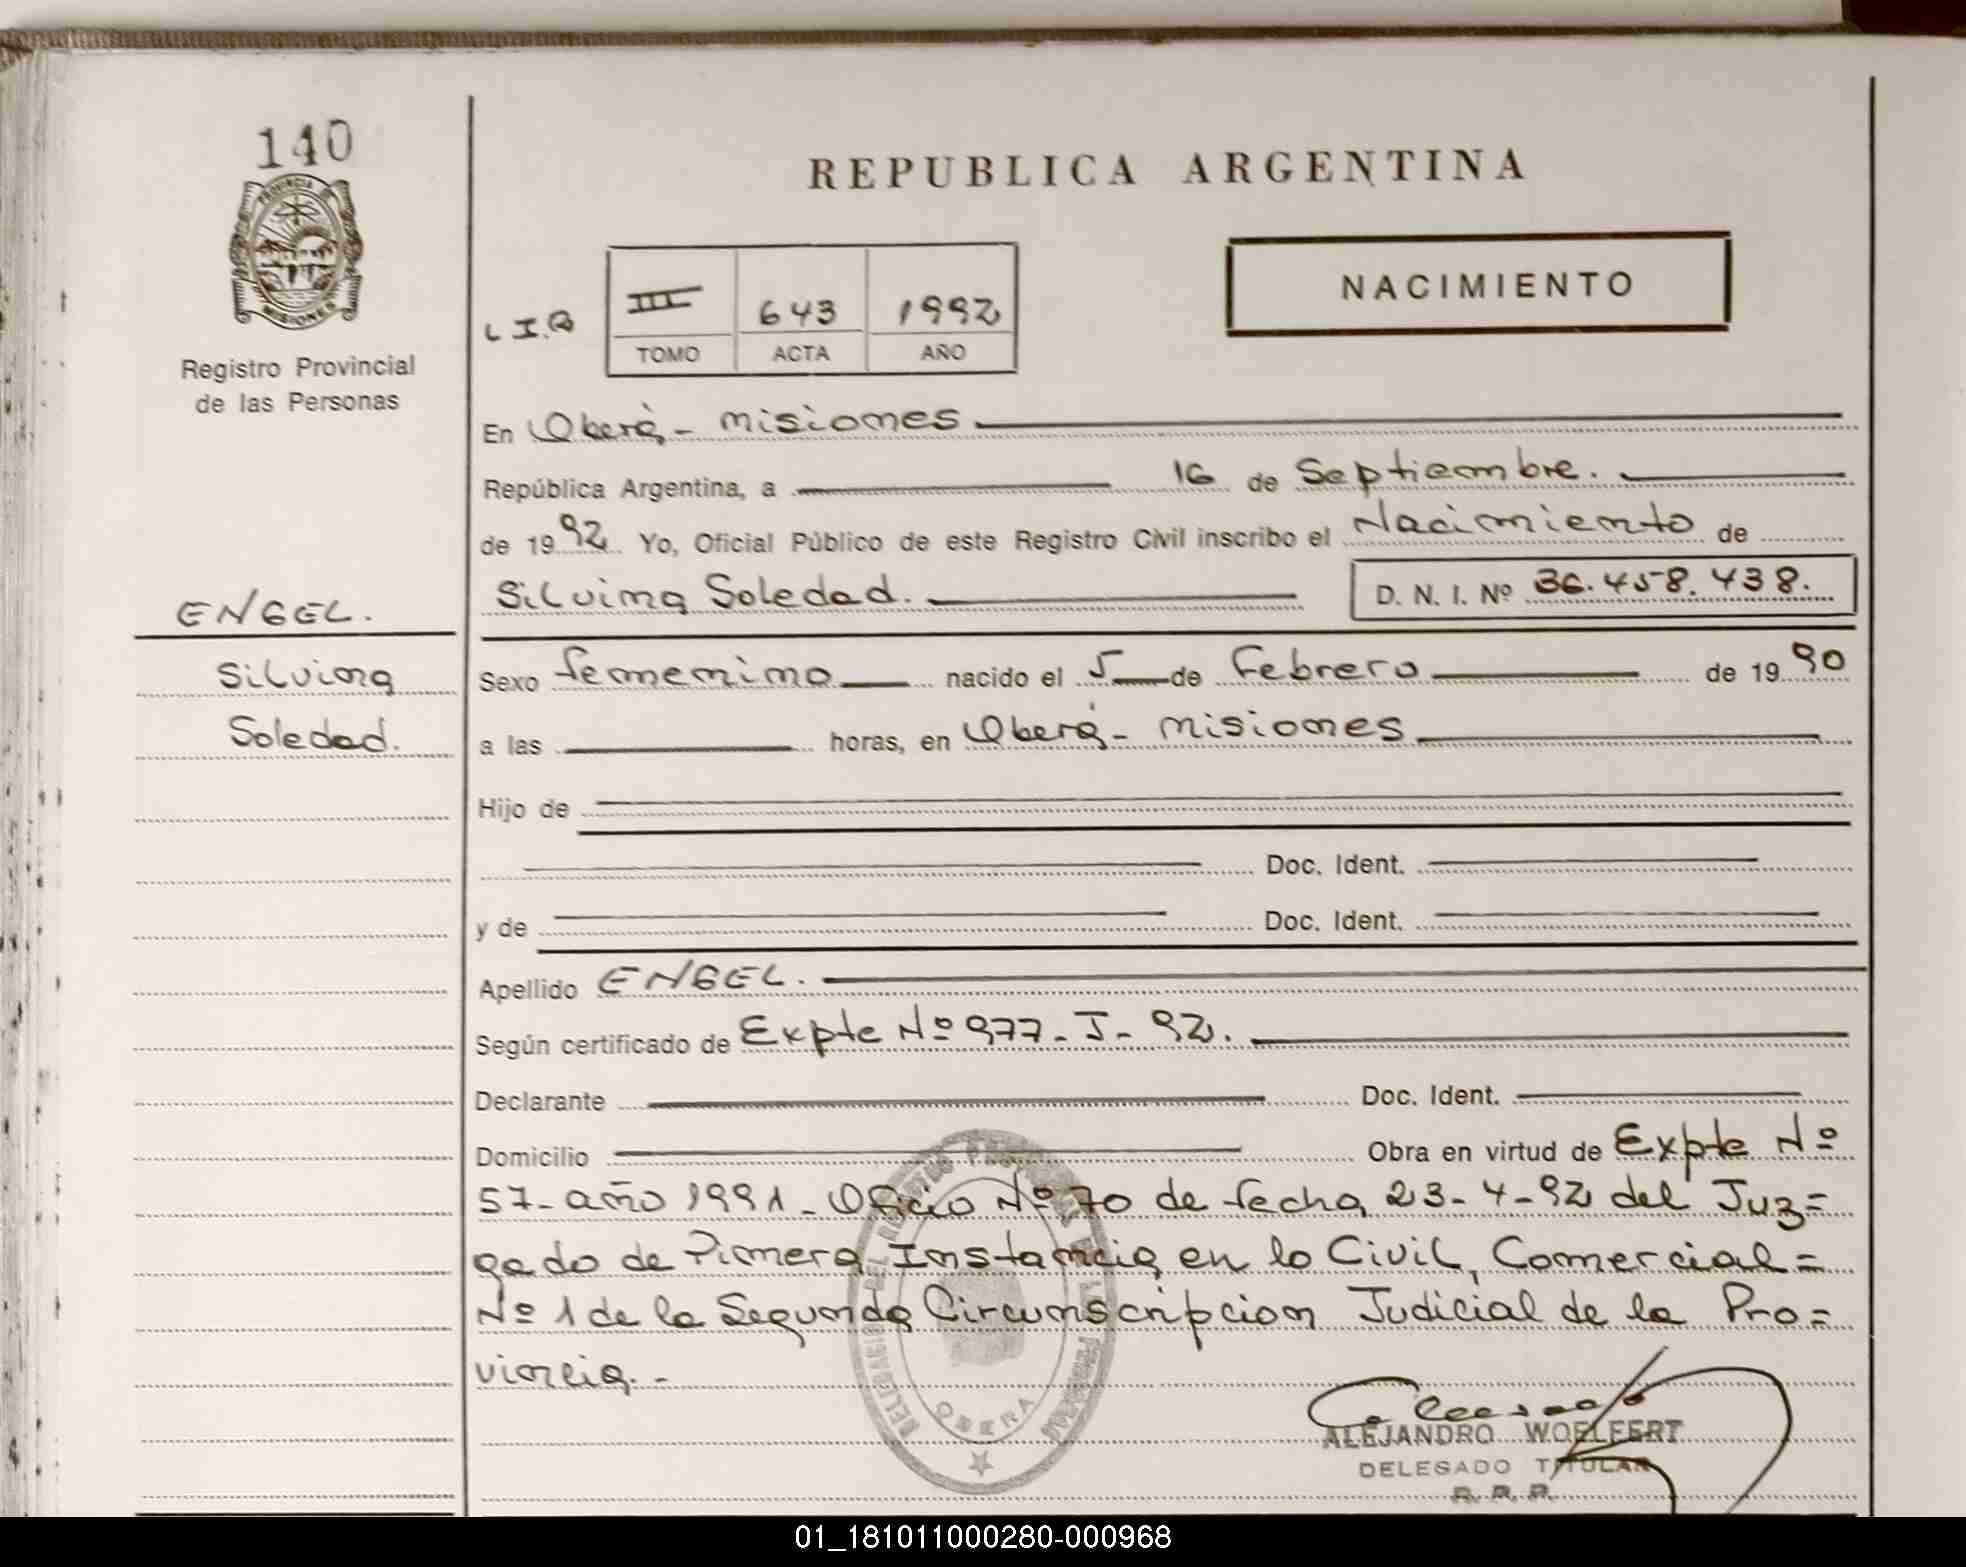 140
PROVINCIA
MISIONES
Registro Provincial
de las Personas
REPUBLICA ARGENTINA
NACIMIENTO
LIB III 643 1992
TOMO ACTA AÑO
En Oberá - Misiones
República Argentina, a 16 de Septiembre.
de 1992 Yo, Oficial Público de este Registro Civil inscribo el Nacimiento de
Silvina Soledad. D. N. I. Nº 36.458.438.
ENGEL.
Silvina
Soledad.
Sexo femenino nacido el 5 de Febrero de 1990
a las horas, en Oberá - Misiones
Hijo de
Doc. Ident.
y de Doc. Ident.
Apellido ENGEL.
Según certificado de Expte Nº 977 - J - 92.
Declarante Doc. Ident.
Domicilio Obra en virtud de Expte Nº
57 - año 1991 - Oficio Nº 70 de fecha 23-4-92 del Juz=
gado de Primera Instancia en lo Civil, Comercial =
Nº 1 de la Segunda Circunscripcion Judicial de la Pro=
vincia. -
OBERA
ALEJANDRO WOELFERT
DELEGADO TITULAR
R. P. P.
01_181011000280-000968